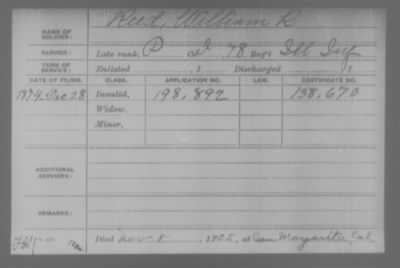 Reed, William R
NAME OF SOLDIER:
SERVICE: Late rank, P Co. I, 78 Reg't Ill Inf
TERM OF SERVICE: Enlisted , 1 Discharged , 1
DATE OF FILING. CLASS. APPLICATION NO. LAW. CERTIFICATE NO.
1874 Dec 28 Invalid, 198,892 138,670
Widow,
Minor,
ADDITIONAL SERVICES:
REMARKS:
Died Nov 8, 1925, at Margarita, Cal.